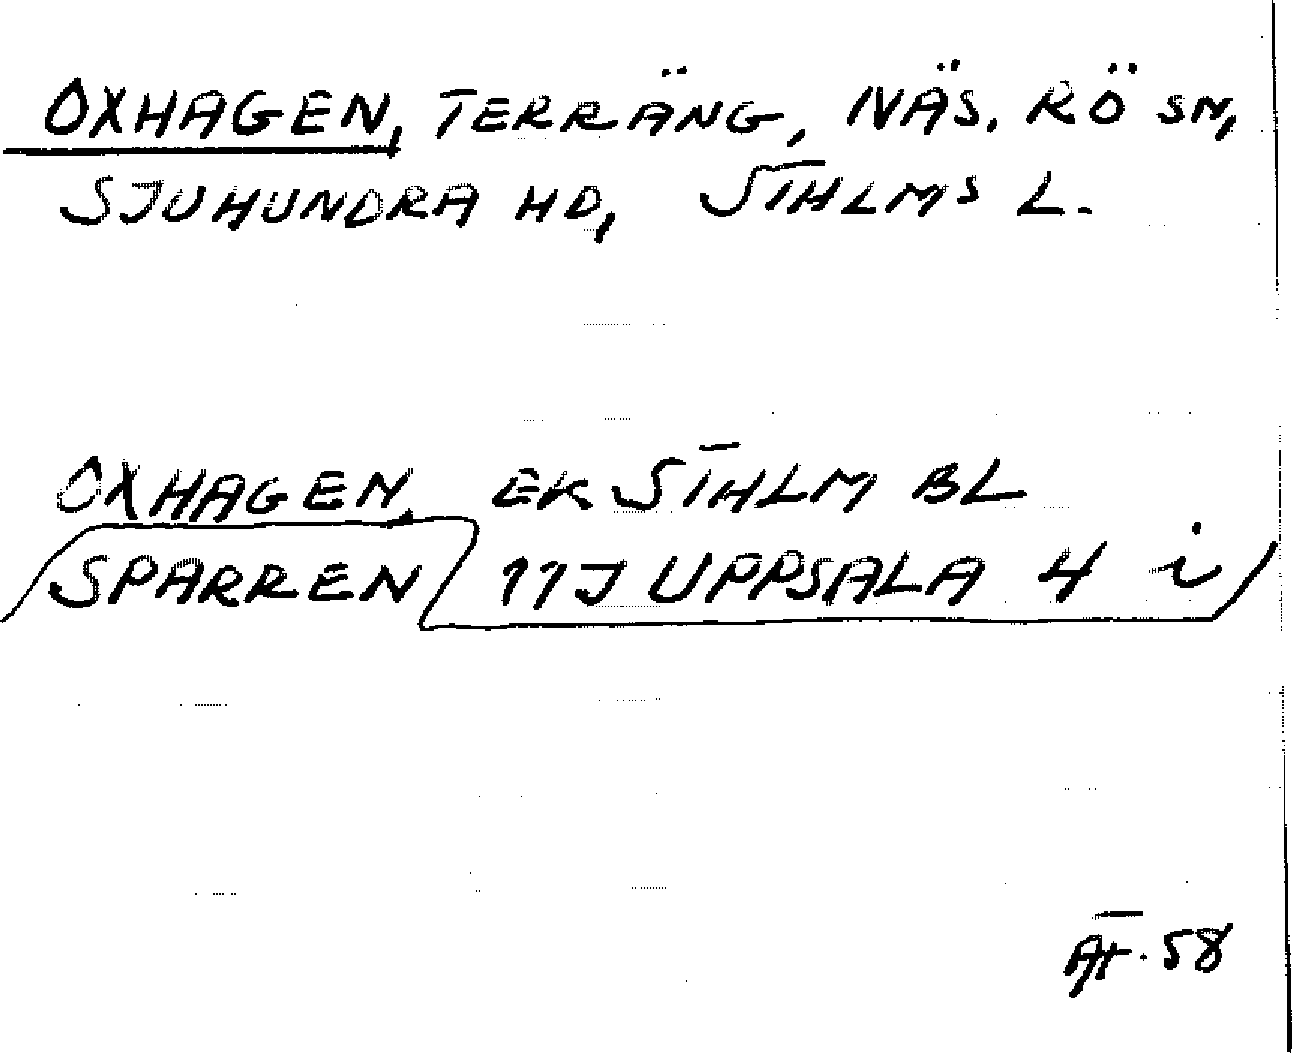 OXHAGEN, TERRÄNG, NÄS. RÖ SN,
SJUHUNDRA HD, STHLMS L.
OXHAGEN, EK STHLM BL
SPARREN 11J UPPSALA 4 i
AT. 58